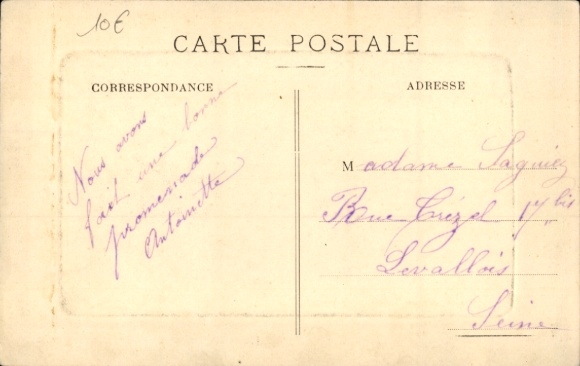 10€
CARTE POSTALE
CORRESPONDANCE
Nous avons
fait une bonne
promenade
Antoinette
ADRESSE
Madame Saguiez
Rue Trézel 17 bis
Levallois
Seine